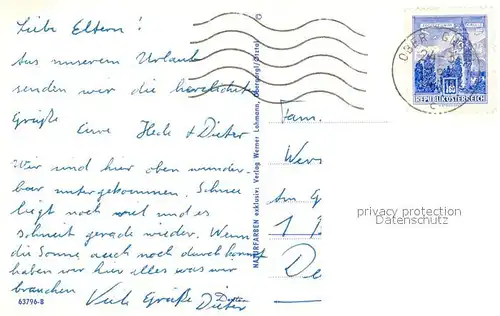 Liebe Eltern!
Aus unserem Urlaub
senden wir die herzlichsten
Grüße Eure Heck + Dieter
Wir sind hier oben wunder-
bar untergekommen. Schnee
liegt noch viel und es
schneit gerade wieder. Wenn
die Sonne auch noch durchkommt
haben wir hier alles was wir
brauchen
Viele Grüße Dieter
63796-B
NATURFARBEN exklusiv: Verlag Werner Lohmann, Obergurgl/Ötztal
©
OBER
REPUBLIK ÖSTERREICH
Fam.
Wers
Am G
1
De
privacy protection
Datenschutz